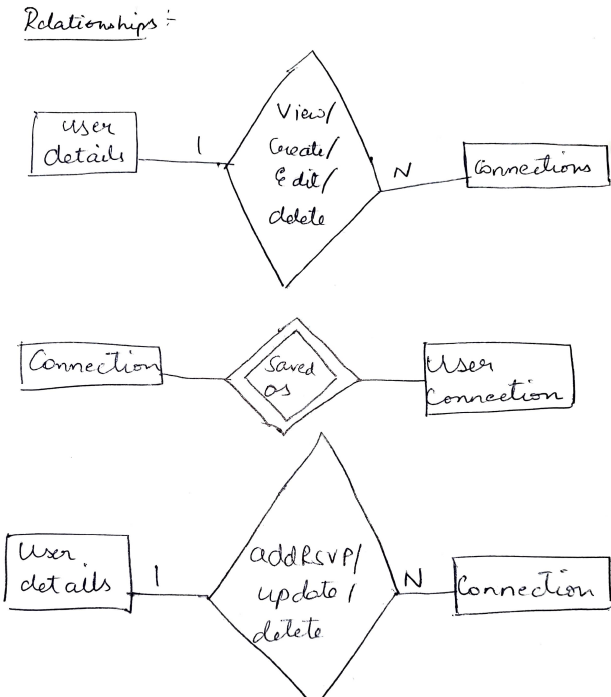 Relationships :-
User
details
1
View/
Create/
Edit/
delete
N
Connections
Connection
Saved
as
User
Connection
User
details
1
addRSVP/
update/
delete
N
Connection